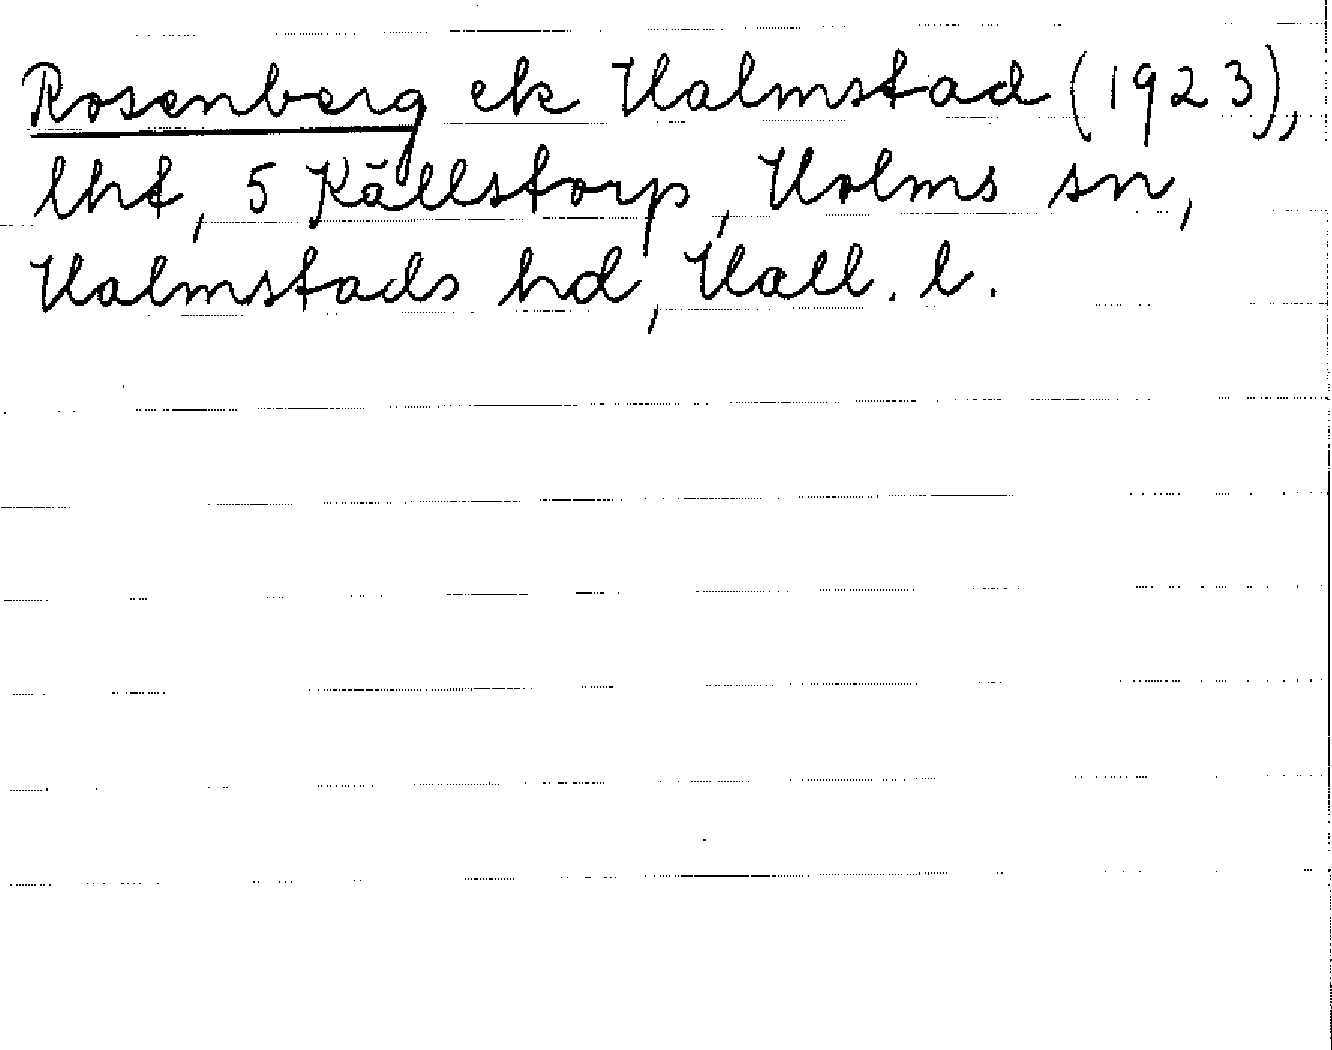 Rosenberg ek Halmstad (1923),
lht, 5 Källstorp, Holms sn,
Halmstads hd, Hall. l.